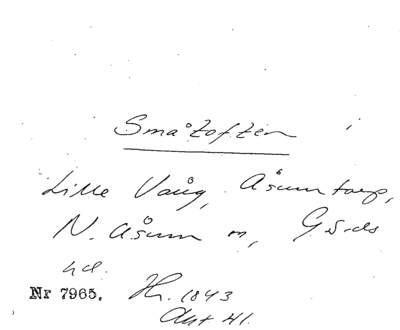 Småtoften
Lille Vång, Åsumtorp,
N. Åsum sn, Gärds
hd.
Nr 7965. Hr. 1843
Akt 41.